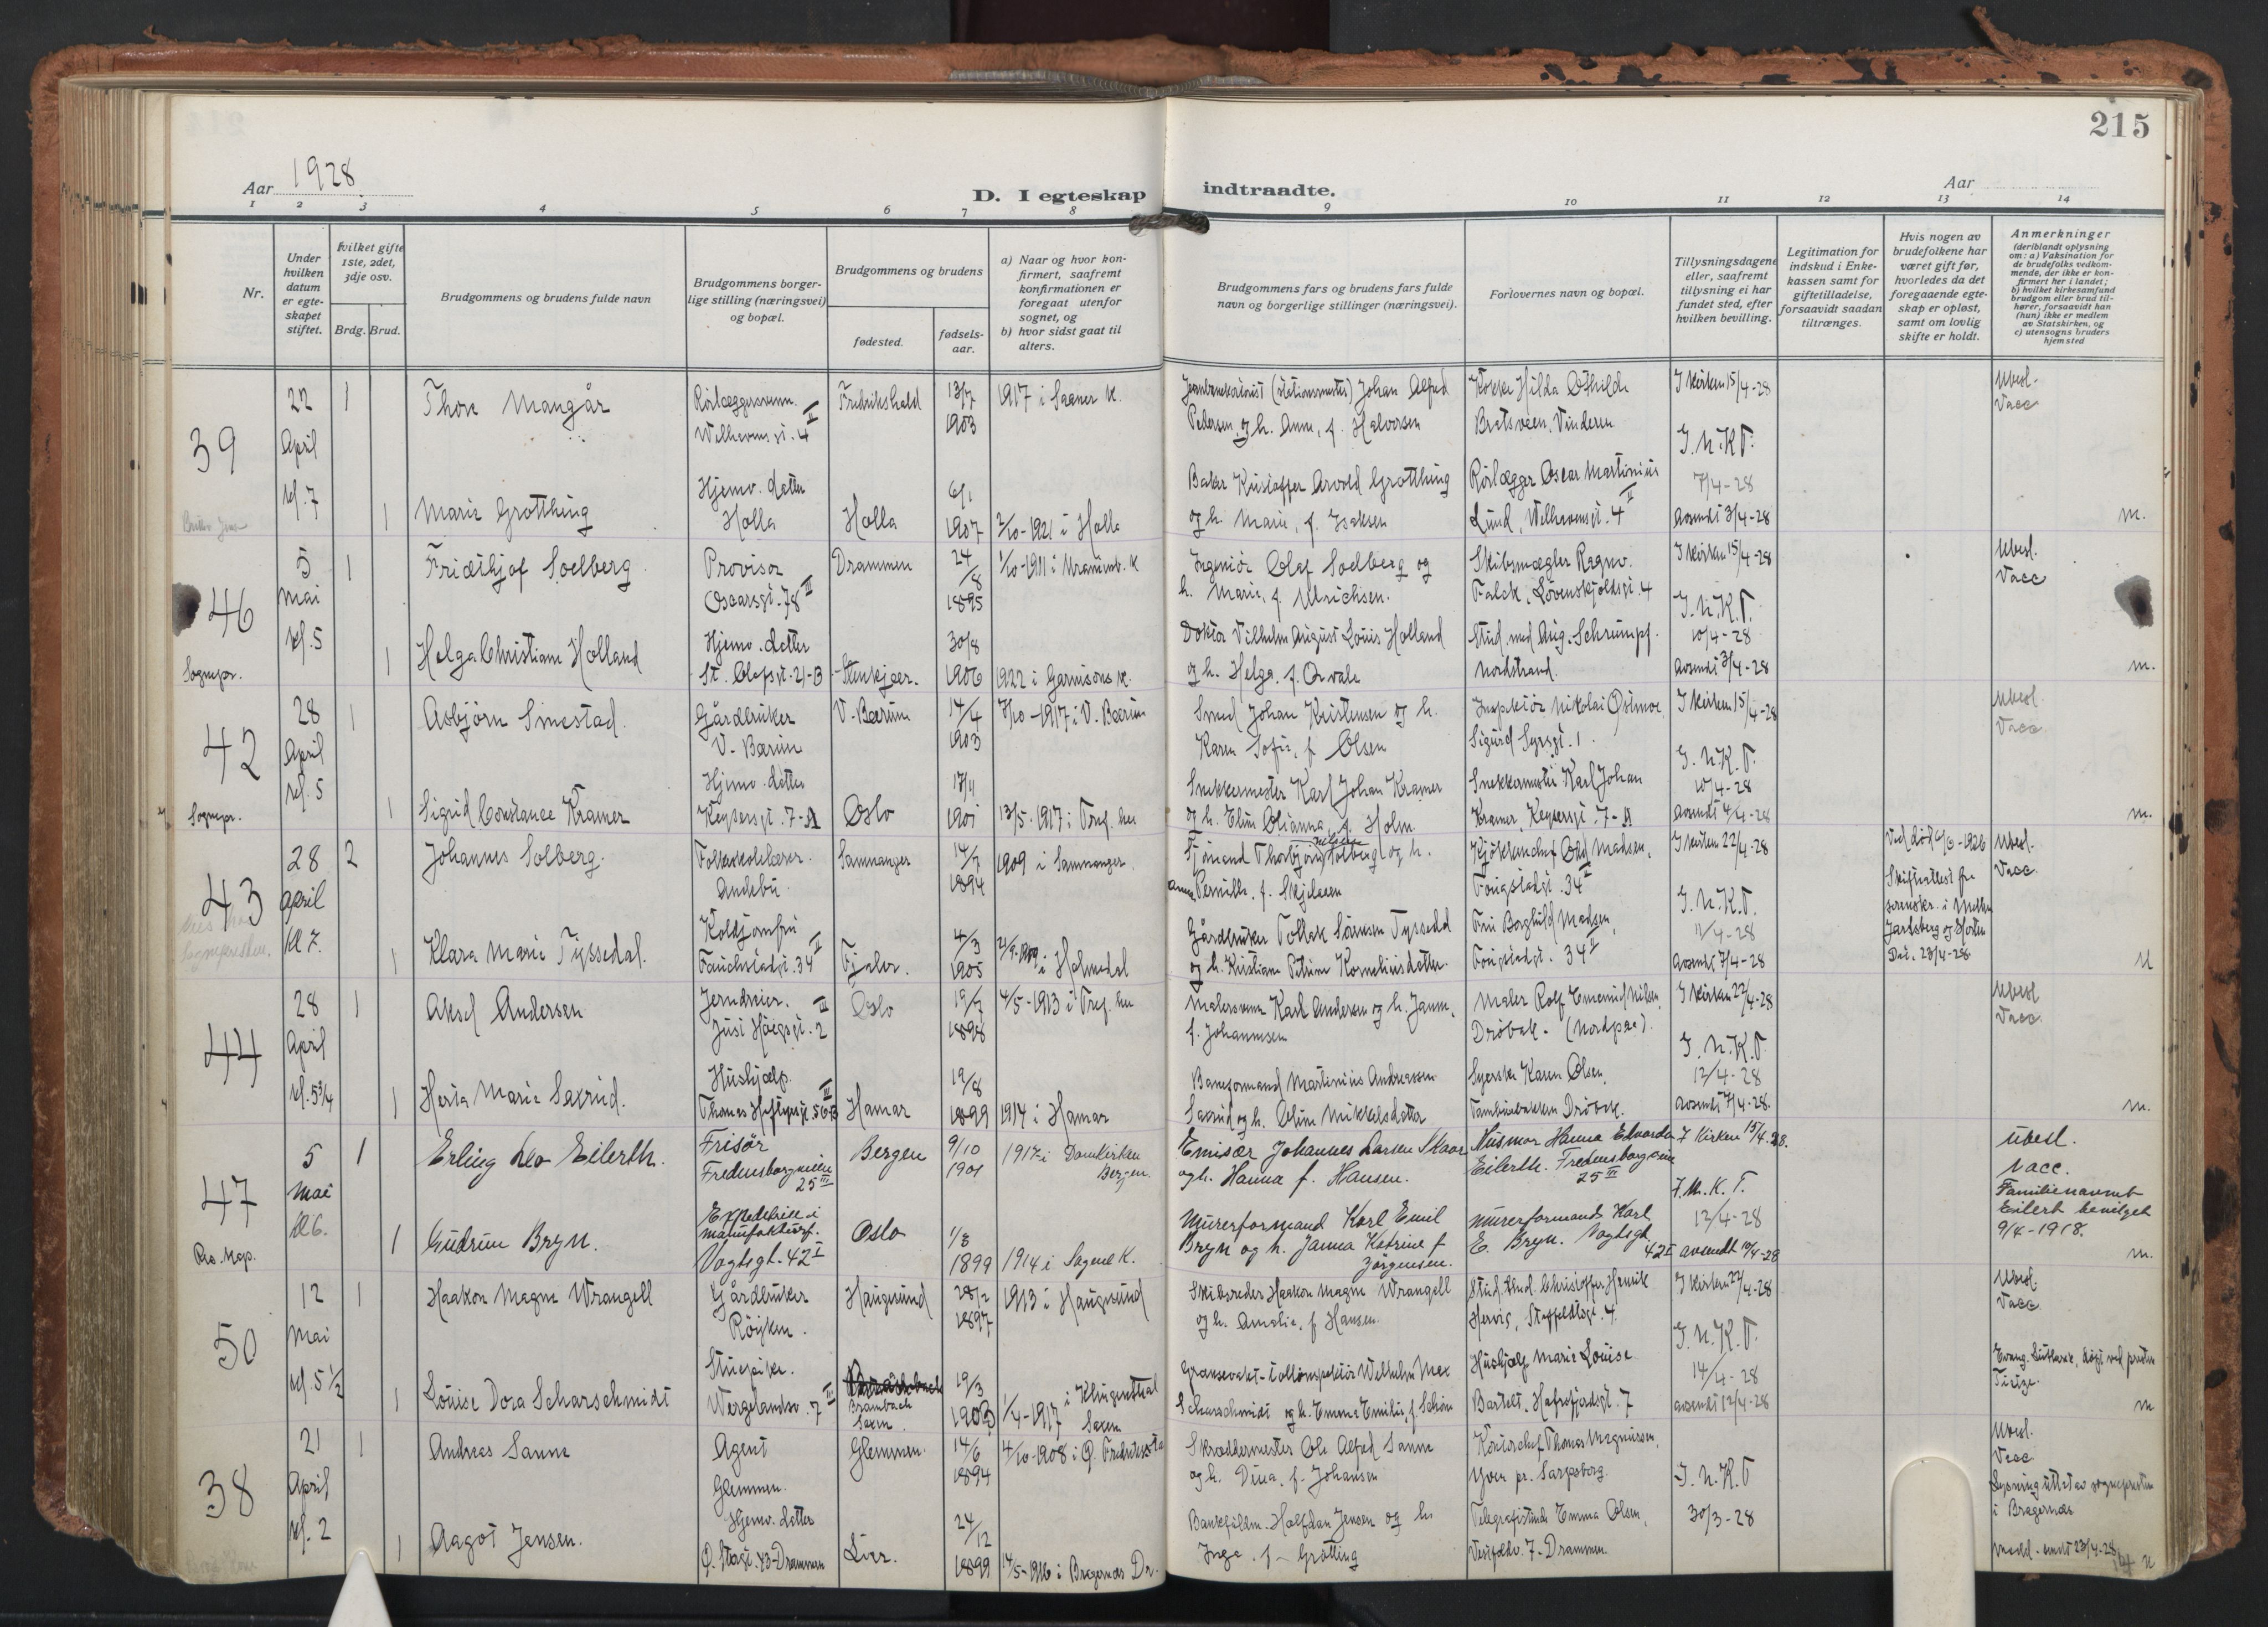 215
Aar 1928
D. I egteskap indtraadte.
Aar
1 2 3 4 5 6 7 8 9 10 11 12 13 14
Nr.
Under hvilken datum er egteskapet stiftet.
Hvilket gifte 1ste, 2det, 3dje osv.
Brdg. Brud.
Brudgommens og brudens fulde navn
Brudgommens borgerlige stilling (næringsvei) og bopæl.
Brudgommens og brudens
fødested.
fødselsaar.
a) Naar og hvor konfirmert, saafremt konfirmationen er foregaat utenfor sognet, og
b) hvor sidst gaat til alters.
Brudgommens fars og brudens fars fulde navn og borgerlige stillinger (næringsvei).
Forlovernes navn og bopæl.
Tillysningsdagene eller, saafremt tillysning ei har fundet sted, efter hvilken bevilling.
Legitimation for indskud i Enkekassen samt for giftetilladelse, forsaavidt saadan tiltrænges.
Hvis nogen av brudefolkene har været gift før, hvorledes da det foregaaende egteskap er opløst, samt om lovlig skifte er holdt.
Anmerkninger
(deriblandt oplysning om: a) Vaksination for de brudefolks vedkommende, der ikke er konfirmert her i landet; b) hvilket kirkesamfund brudgom eller brud tilhører, forsaavidt han (hun) ikke er medlem av Statskirken, og c) utensogns bruders hjemsted
39
22 April kl. 7
1
Thore Mangår
Rørlæggersvenn. Welhavens gt. 4 II
Fredrikshald
13/7 1903
1917 i Sagene K.
(Stationsmester) Johan Alfred
Pedersen og h. Anne, f. Halvorsen
Kokke Hilda Othilde
Bratsveen, Vinderen
I kirken 15/4-28
I.M.K.T.
Ubesl.
Vacc
1
Marie Grotthing
Hjemv. datter Holla
Holla
6/1 1907
2/10-1921 i Holla
Baker Kristoffer Arvold Grotthing
og h. Marie, f. Isaksen
Rørlægger Oscar Martinius
Lund, Welhavensgt. 4 II
7/4-28
Avsendt 3/4-28
m.
46
5 Mai kl. 5
Sognepr.
1
Fridthjof Soelberg
Provisor Oscarsgt. 78 III
Drammen
24/8 1895
1/10-1911 i
Ingeniør Olaf Soelberg og
h. Marie, f. Ulrichsen.
Skibsmægler Ragnv.
Falck, Løvenskjoldsgt. 4
I kirken 15/4-28
I.M.K.T.
Ubesl.
Vacc
1
Helga Christiane Holland
Hjemv. datter
St. Olafsgt. 21-B
Stenkjær.
30/8 1906
1922 i Garnisons K.
Doktor Vilhelm August Louis Holland
og h. Helga, f. Orvale
Stud. med. Aug. Schrumpf.
Nordstrand.
10/4-28
Avsendt 3/4-28
m.
42
28 April kl. 5
Sognepr.
1
Asbjørn Smestad.
Gårdbruker V. Bærum
V. Bærum
14/4 1903
7/10-1917 i V. Bærum
Smed Johan Kristensen og h.
Karen Sofie, f. Olsen
Inspektør Nikolai Østmoe,
Sigurd Syrsgt. 1.
I kirken 15/4-28
I.M.K.T.
Ubesl.
Vacc
1
Sigrid Constance Kramer
Hjemv. datter
Keysersgt. 7-A
Oslo
17/11 1901
13/5-1917 i Tref. her
Snekkermester Karl Johan Kramer
og h. Elin Olianna, f. Holm.
Snekkermester Karl Johan
Kramer, Keysersgt. 7-A
10/4-28
Avsendt 4/4-28
m.
43
28 April kl. 7.
Sognepresten.
2
Johannes Solberg.
Folkeskolelærer. Andebu.
Samnanger
14/7 1894
1909 i Samnanger
Thorbjørn Nilsen Solberg og h.
Anna Pernille, f. Skjelaaen
Kjøkkenchef Olaf Madsen,
Fougstadgt. 34 II
I kirken 22/4-28
I.M.K.T.
Ved død 6/3-1926
Skifteattest fra
sorenskr. i Mellem
Jarlsberg og Horten
Dat. 23/4-28
Ubesl.
Vacc.
1
Klara Marie Tyssedal.
Koldjomfru
Fauchstadgt. 34 II
Fjaler.
4/3 1905
i Holmedal
Gårdbruker Tollak Sørensen Tyssedal
og h. Kristiane Petrine Korneliusdatter
Fru Borghild Madsen,
Fougstadgt. 34 II
11/4-28
Avsendt 7/4-28
44
28 April kl. 5 3/4
1
Aksel Andersen
Jerndreier.
Jusi Høegsgt. 2 III
Oslo
19/7 1898
4/5-1913 i Tref. her
Malersvenn Karl Andersen og h. Janna,
f. Johannessen
Maler Rolf Emenid Nilsen
Drøbak - (Nordpaa).
I kirken 22/4-28
I.M.K.T.
Ubesl
Vacc.
1
Herta Marie Saxrud.
Hushjælp.
Thomas Heftyesgt. 56 B III
Hamar
19/8 1899
1914 i Hamar
Baneformand Martinius Andreassen
Saxrud og h. Oline Mikkelsdatter
Syerske Karen Olsen,
Tamburbakken Drøbak.
12/4-28
Avsendt 7/4-28.
m.
47
5 Mai Kl 6.
Res. Kap.
1
Erling Leo Eilerth.
Frisør
Fredensborgveien 25 III
Bergen
9/10 1901
1917 i Domkirken Bergen.
Emisær Johannes Larsen Skaar
og h. Hanna f. Hansen.
Husmor Hanna Edvarda
Eilerth. Fredensborgveien 25 III
I Kirken 15/4.28.
I.M.K.T.
Ubesl.
Vacc.
Familienavnet
Eilert bevilget
9/4-1918.
1
Gudrun Bryn.
Expeditrise i manufakturf.
Vogtsgt. 42 I
Oslo
1/8 1899
1914 i Sagene K.
Murerformand Karl Emil
Bryn og h. Janna Katrine f
Jørgensen.
Murerformand Karl
E. Bryn. Vogtsgt. 42 I
12/4-28
avsendt 10/4-28
m.
50
12 Mai kl. 5 1/2
1
Haakon Magne Wrangell
Gårdbruker Røyken.
Haugesund
28/2 1897
1913 i Haugesund
Skibsreder Haakon Magne Wrangell
og h. Amalie, f. Hansen.
Stud. Christoffer Henrik
Hervig, Staffeldtsgt. 4.
I kirken 22/4-28
I.M.K.T.
Ubesl.
Vacc.
1
Louise Dora Scharschmidt
Stuepike.
Wergelandsv. 7 III
Brambach Saxen.
19/3 1903
1/4-1917 i Klingenthal Saxen
Grænsevakt-tollinspektør Wilhelm Max
Scharschmidt og h. Emma Emilie, f. Schön
Hushjælp Marie Louise
Bartelt, Hafrsfjordsgt. 7
14/4-28
avsendt 12/4-28
Evang. Luthersk, døpt ved
m
38
21 April kl. 2
1
Andreas Sanne
Agent Glemmen.
Glemmen.
14/6 1894
4/10-1908 i Ø. Fredrikstad
Skræddermester Ole Alfred Sanne
og h. Dina, f. Johansen
Kontorchef Thomas Magnussen,
Yven pr. Sarpsborg.
I.M.K.T
Ubesl.
Vacc
Lysning utført av sognepresten
i Bragernes
1
Aagot Jensen.
Hjemv. datter
Ø. Storgt. 43-Drammen
Lier.
24/12 1899
14/5-1916 i Bragernes Dr.
Bankfuldm. Halfdan Jensen og h.
Inga, f. Grøtting
Telegrafistinde Emma Olsen,
Vestfoldv. 7-Drammen.
30/3-28
Medd. sendt 23/4-28